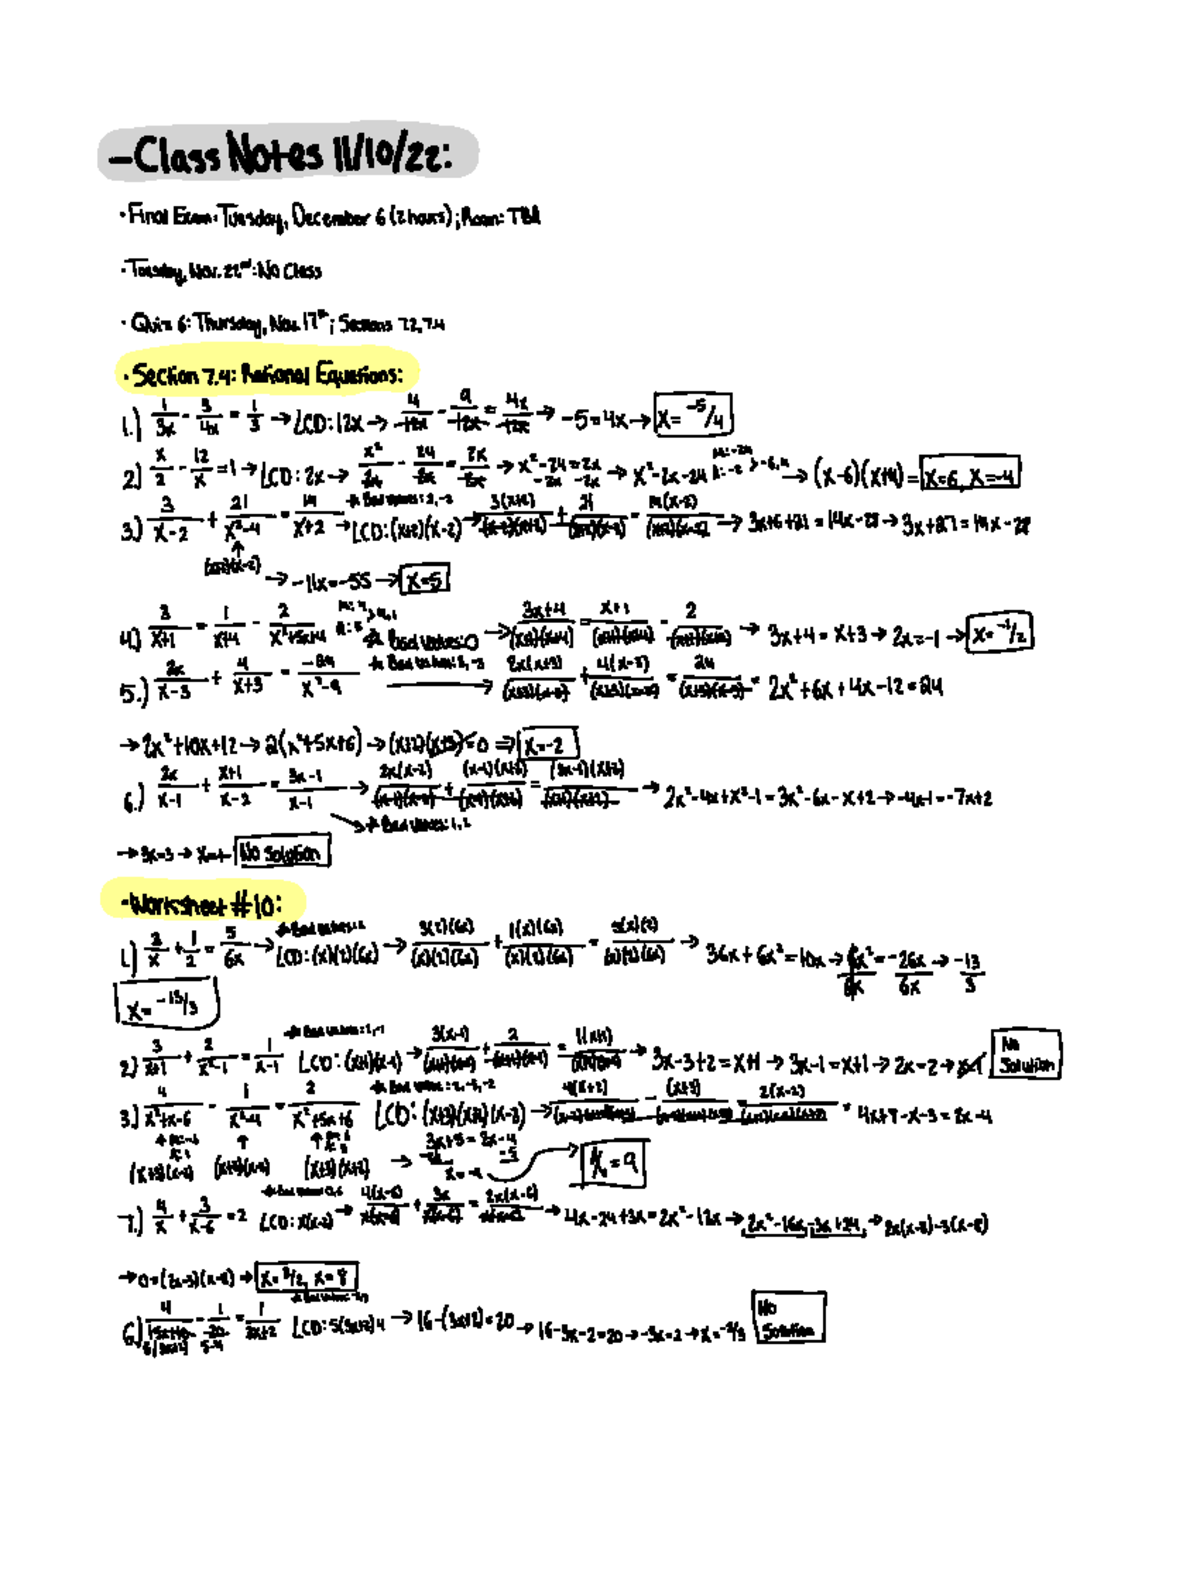 -Class Notes 11/10/22:
·Final Exam: Tuesday, December 6 (2 hours); Room: TBA
·Tuesday, Nov. 22nd: No Class
·Quiz 6: Thursday, Nov. 17th; Sections 7.2, 7.4
·Section 7.4: Rational Equations:
1.) 1/3x - 3/4x = 1/3 → LCD: 12x → 4/12x - 9/12x = 4x/12x → -5=4x → x= -5/4
2.) x/2 - 12/x = 1 → LCD: 2x → x²/2x - 24/2x = 2x/2x → x²-24=2x → x²-2x-24 → (x-6)(x+4)= x=6, x=-4
3.) 3/x-2 + 21/x²-4 = 14/x+2 → LCD: (x+2)(x-2) → 3(x+2)/(x-2)(x+2) + 21/(x+2)(x-2) = 14(x-2)/(x+2)(x-2) → 3x+6+21=14x-28 → 3x+27=14x-28
(x+2)(x-2) → -11x=-55 → x=5
4.) 3/x+1 = 1/x+4 - 2/x²+5x+4 → 3x+4/(x+1)(x+4) = x+1/(x+1)(x+4) - 2/(x+1)(x+4) → 3x+4 = x+3 → 2x=-1 → x= -1/2
5.) 2x/x-3 + 4/x+3 = -24/x²-9 → 2x(x+3)/(x+3)(x-3) + 4(x-3)/(x+3)(x-3) = 24/(x+3)(x-3) = 2x²+6x+4x-12=24
→ 2x²+10x+12 → 2(x²+5x+6) → (x+2)(x+3)=0 ⇒ x=-2
6.) 2x/x-1 + x+1/x-2 = 3x-1/x-1 → 2x²-4x+x²-1=3x²-6x-x+2 → -4x-1=-7x+2
* Bad Values: 1, 2
→ 3x=3 → x=1 No Solution
·Worksheet #10:
1.) 3/x + 1/2 = 5/6x → LCD: (x)(2)(6x) → 3(2)(6x)/(x)(2)(6x) + 1(x)(6x)/(x)(2)(6x) = 5(x)(2)/(x)(2)(6x) → 36x+6x²=10x → 6x²/6x = -26x/6x → -13/3
x= -13/3
2.) 3/x+1 + 2/x²-1 = 1/x-1 LCD: (x+1)(x-1) → 3(x-1)/(x+1)(x-1) + 2/(x+1)(x-1) = 1(x+1)/(x+1)(x-1) → 3x-3+2=x+1 → 3x-1=x+1 → 2x=2 → x=1 No Solution
3.) 4/x²+x-6 - 1/x²-4 = 2/x²+5x+6 LCD: (x+3)(x+2)(x-2) → 4(x+2) - (x+3) = 2(x-2) = 4x+8-x-3=2x-4
(x+3)(x-2) (x+2)(x-2) (x+3)(x+2) → 3x+5=2x-4 x=-9 x=9
7.) 4/x + 3/x-6 = 2 LCD: x(x-6) → 4(x-6)/x(x-6) + 3x/x(x-6) = 2x(x-6)/x(x-6) → 4x-24+3x=2x²-12x → 2x²-16x-3x+24 → 2x(x-8)-3(x-8)
→ 0=(2x-3)(x-8) → x= 3/2, x=8
6.) 4/15x+10 - 1/20 = 1/3x+2 LCD: 5(3x+2)4 → 16-(3x+2)=20 → 16-3x-2=20 → -3x=2 → x=-2/3 No Solution
5(3x+2) 5·4